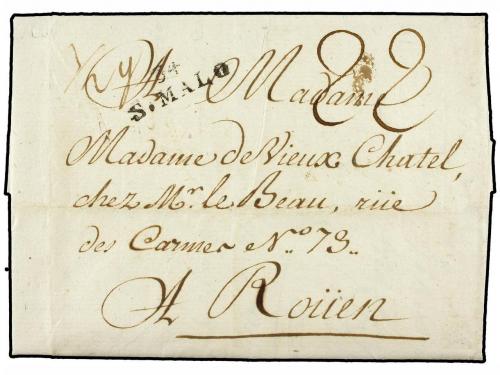 A Madame
34
S. MALO
Madame de Vieux Chatel,
chez Mr. le Beau, rüe
des Carmes N.o 73..
A Roüen